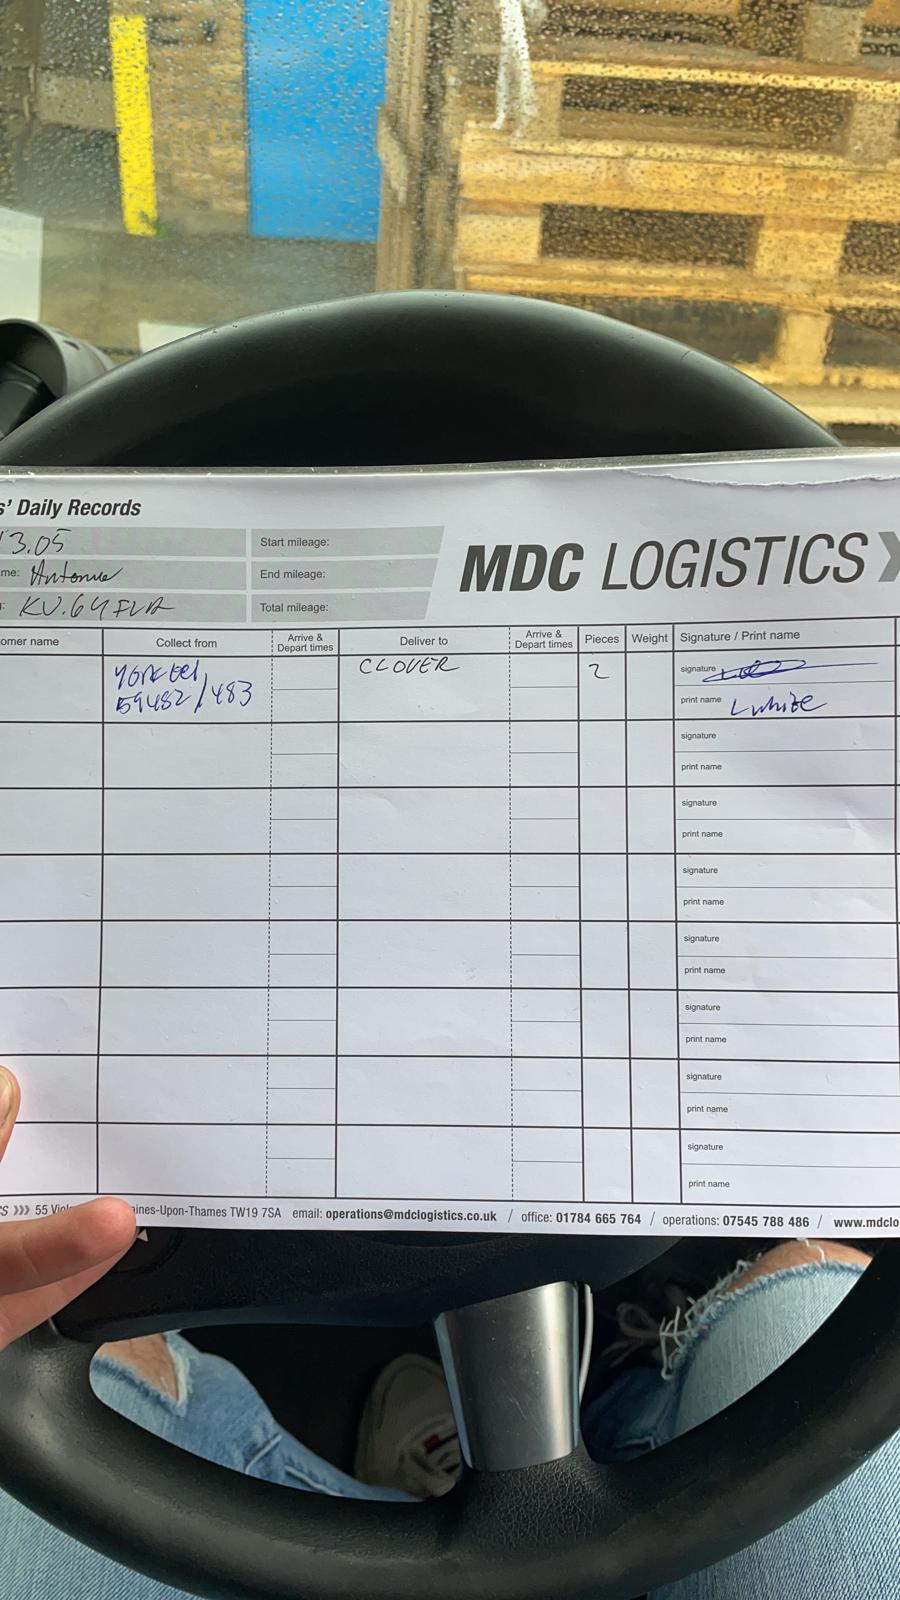 s' Daily Records
13.05
Start mileage:
MDC LOGISTICS
me: Antonie
End mileage:
KV.64
Total mileage:
omer name
Collect from
Arrive & Depart times
Deliver to
Arrive & Depart times
Pieces
Weight
Signature / Print name
59482/483
CLOVER
2
signature
print name L white
signature
print name
signature
print name
signature
print name
signature
print name
signature
print name
signature
print name
signature
print name
CS 55 aines-Upon-Thames TW19 7SA email: operations@mdclogistics.co.uk / office: 01784 665 764 / operations: 07545 788 486 / www.mdclo